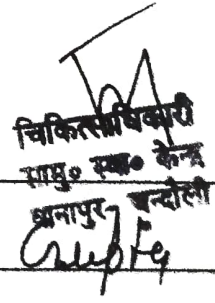 चिकित्साधिकारी
सामु० स्वा० केन्द्र
धानापुर- चन्दौली